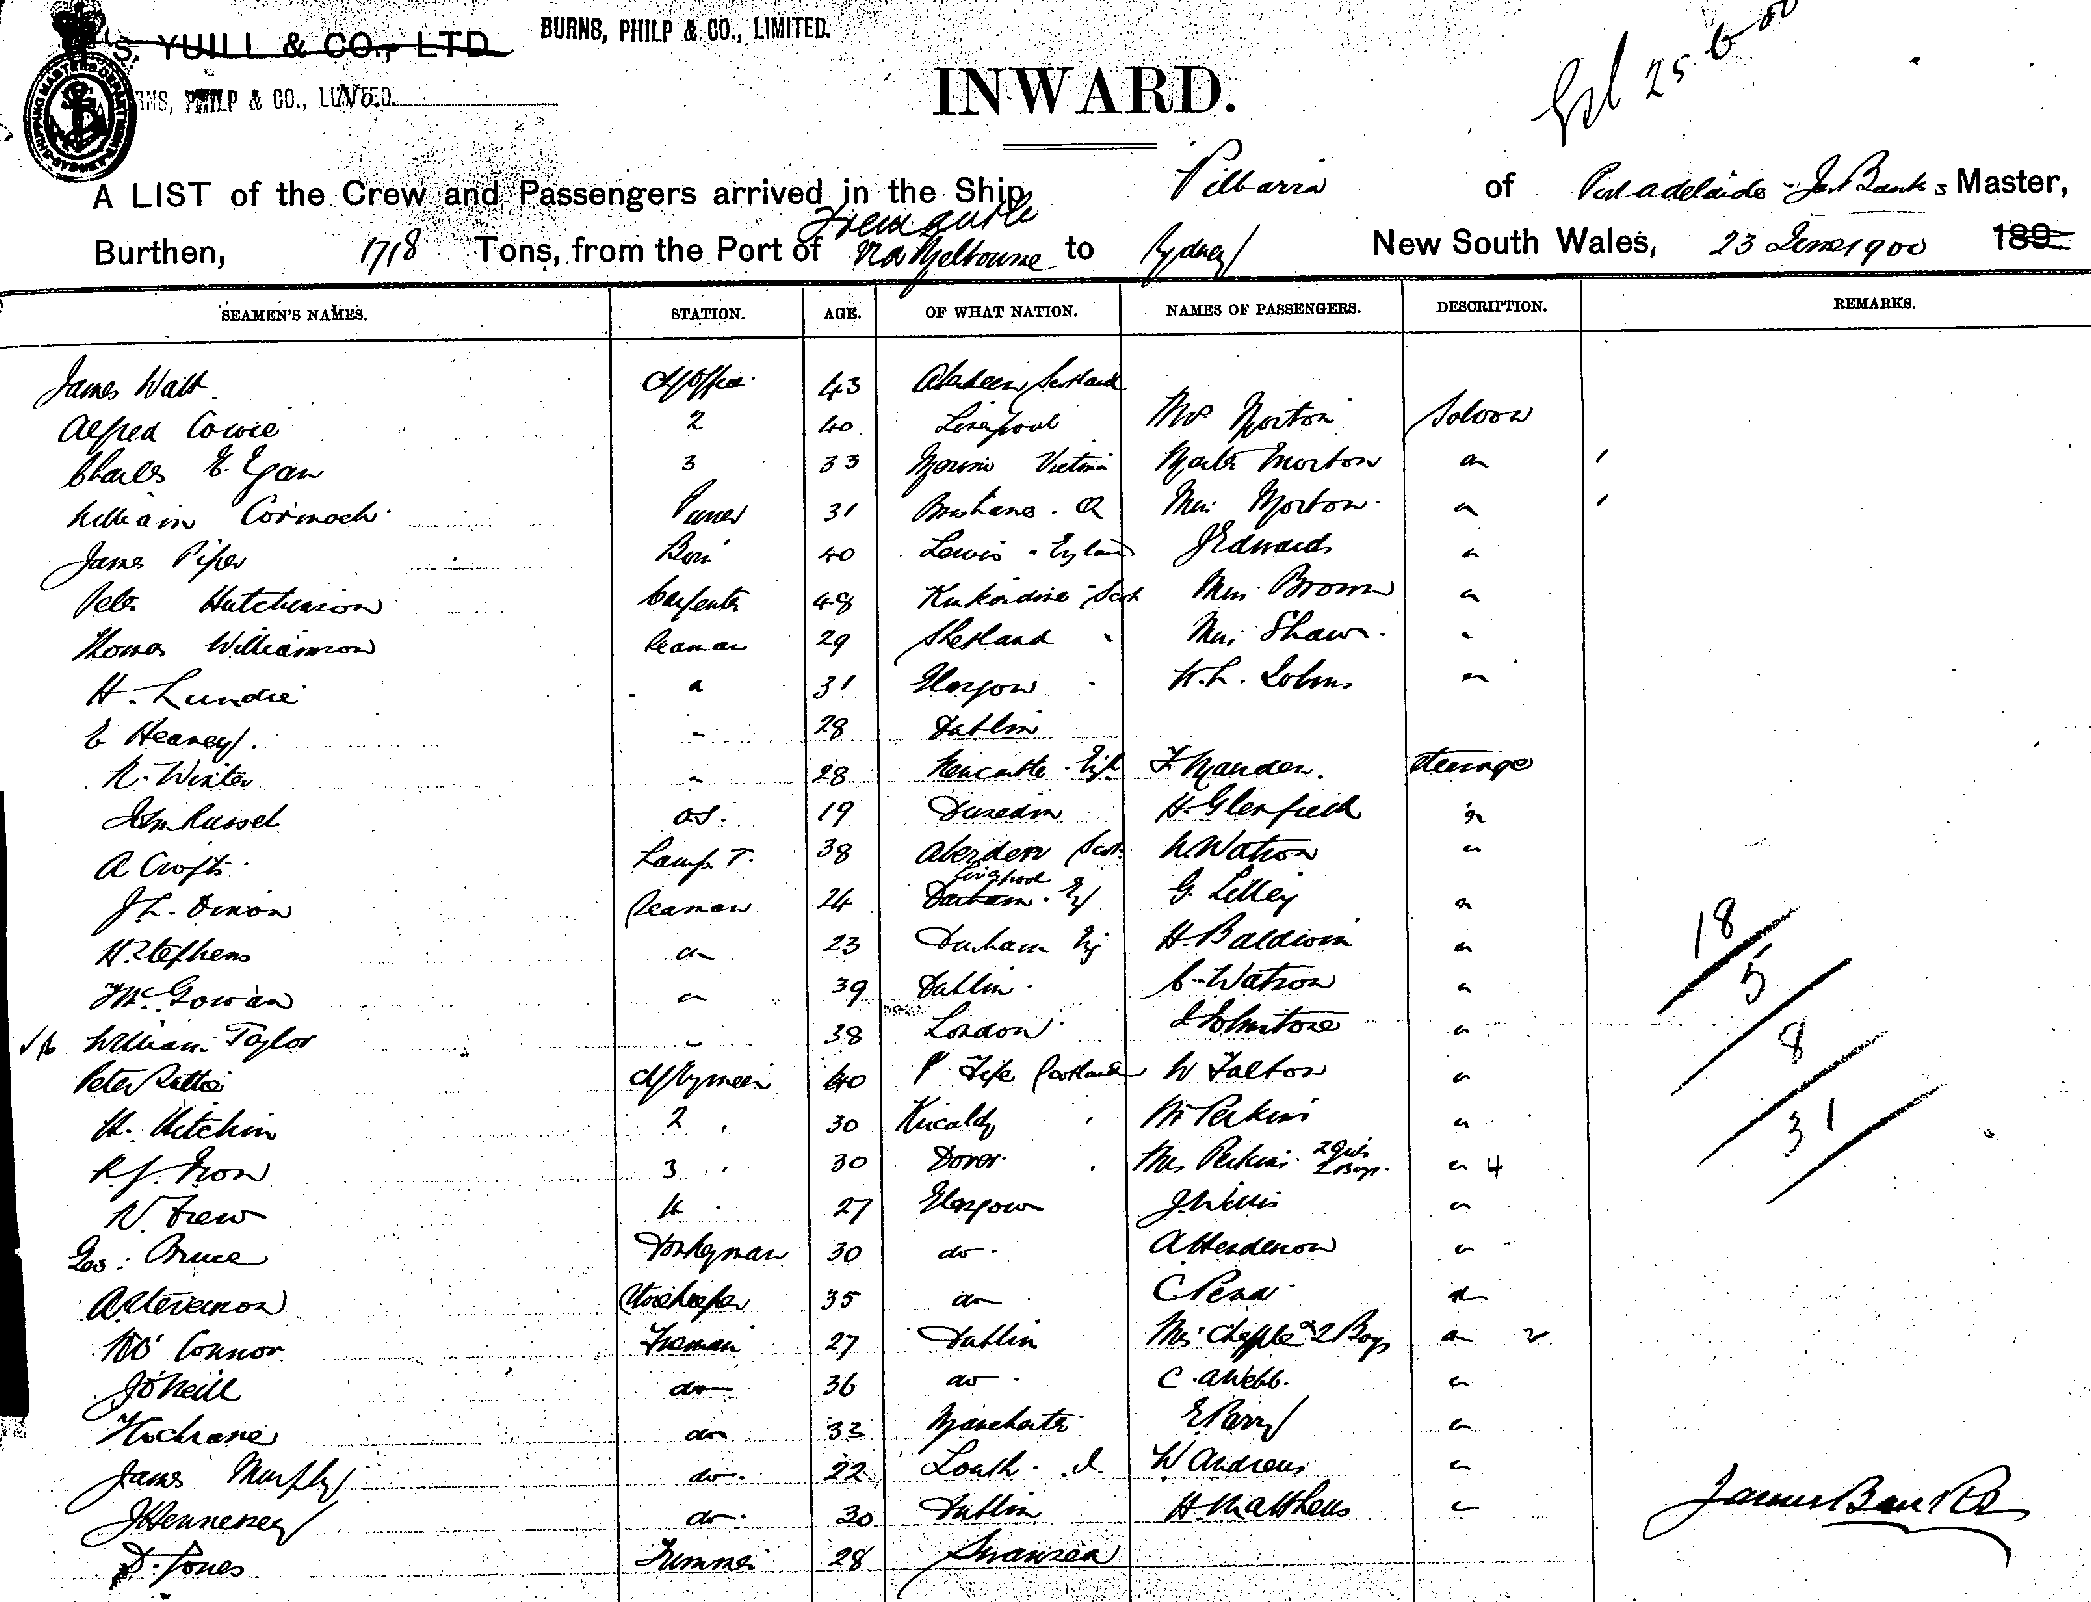 S. YUILL & CO., LTD. BURNS, PHILP & CO., LIMITED.
BURNS, PHILP & CO., LIMITED.
INWARD.
25 6 00
A LIST of the Crew and Passengers arrived in the Ship Pilbarra of Port Adelaide Jas Banks Master,
Fremantle
Burthen, 1718 Tons, from the Port of via Melbourne to Sydney New South Wales, 23 June 1900 189
SEAMEN'S NAMES. STATION. AGE. OF WHAT NATION. NAMES OF PASSENGERS. DESCRIPTION. REMARKS.
James Watt Ch Officer 43 Aberdeen Scotland
Alfred Cowie 2 40 Liverpool Mrs Morton Saloon
Charles E. Egan 3 33 Victoria Morton "
William Cormack Purser 31 Brisbane. Q Miss Morton "
James Piper 40 Lewis England J Edwards "
Peter Hutchinson Carpenter 48 Kinkardine Scot Brown "
Thomas Williamson Seaman 29 Shetland " Shaw "
H. Lundie " 31 Glasgow " Johns "
Heaney " 28 Dublin
Winter " 28 Newcastle Eng Steerage
John Russel OS. 19 Dunedin H. Glenfield "
A Crofts Lamp T. 38 Aberdeen Scot. W. Watson "
J L. Dixon Seaman 24 Durham. G. Lilley "
H. Stephens " 23 Durham Eng H. Baldwin "
McGowan " 39 Dublin C. Watson "
William Taylor " 38 London Johnstone "
Peter Ch Engineer 40 Fife Scotland W Fulton "
H. Hitchin 2 " 30 Mr Perkins "
3 " 30 Dover Mrs Perkins 2 Girls 2 Boys " 4
Frew 4 " 27 Glasgow J. Willis "
Geo. Bruce Donkeyman 30 do. A Henderson "
A Stevenson Storekeeper 35 do C Penn "
O'Connor Fireman 27 Dublin Mrs & 2 Boys " 2
J O'Neill do 36 do. C. A Webb. "
Cochrane do 33 Manchester E Parry "
James Murphy do. 22 Louth. I. W Andrews "
J Hennessey do. 30 Dublin H Matthews "
D. Jones Trimmer 28 Swansea
18
5
8
31
James Banks